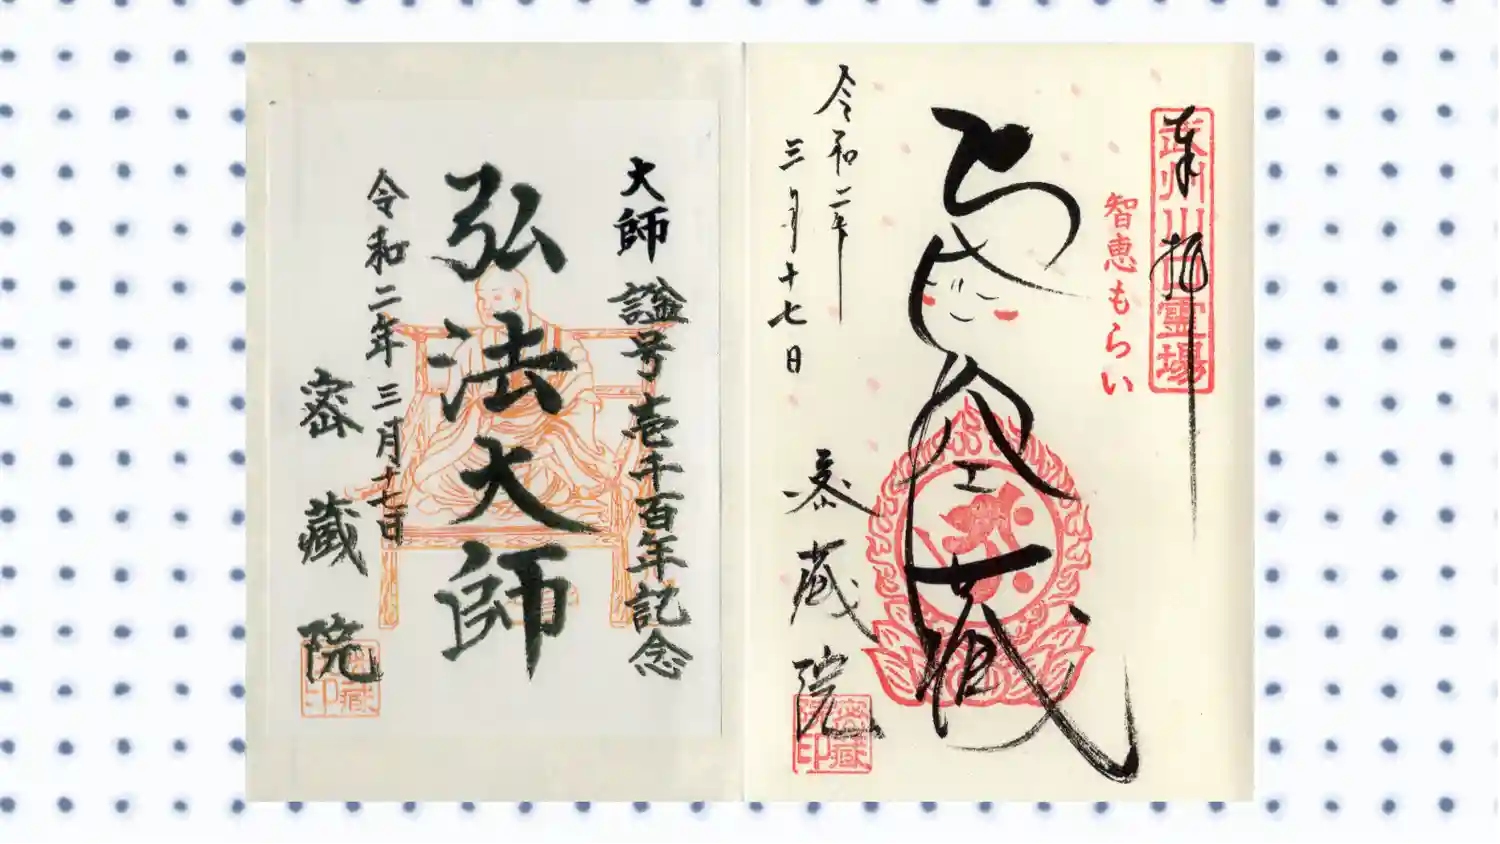 奉拝
武州川口霊場
智恵もらい
令和二年
三月十七日
密蔵院
密蔵院印
大師 諡号壱千百年記念
弘法大師
令和二年三月十七日
密蔵院